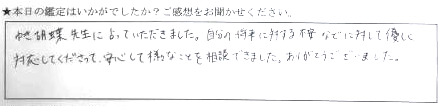 ★本日の鑑定はいかがでしたか？ご感想をお聞かせください。
胡蝶先生に占っていただきました。自分の将来に対する不安などに対して優しく
対応してくださって、安心して様々なことを相談できました。ありがとうございました。